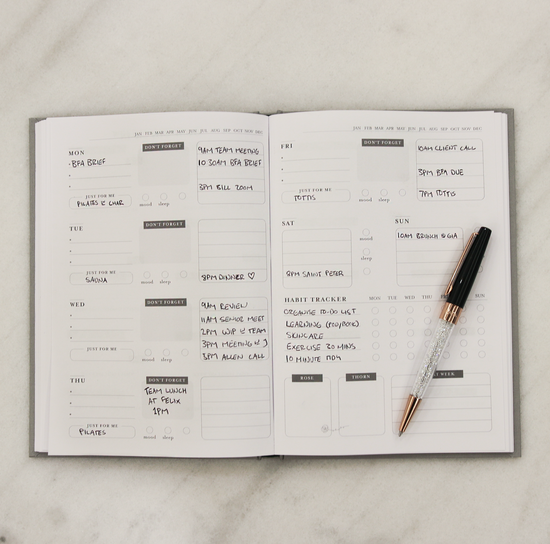 JAN FEB MAR APR MAY JUN JUL AUG SEP OCT NOV DEC
MON
• BPA BRIEF
DON'T FORGET
9AM TEAM MEETING
10 30AM BPA BRIEF
3PM BILL ZOOM
JUST FOR ME
PILATES
mood sleep
TUE
DON'T FORGET
8PM DINNER ♡
JUST FOR ME
SAUNA
mood sleep
WED
DON'T FORGET
9AM REVIEW
11AM SENIOR MEET
2PM WIP & TEAM
3PM MEETING
3PM ALLEN CALL
JUST FOR ME
mood sleep
THU
DON'T FORGET
TEAM LUNCH
AT FELIX
1PM
JUST FOR ME
PILATES
mood sleep
JAN FEB MAR APR MAY JUN JUL AUG SEP OCT NOV DEC
FRI
DON'T FORGET
10AM CLIENT CALL
3PM BPA DUE
7PM TOTTIS
JUST FOR ME
TOTTIS
mood sleep
SAT
8PM SAINT PETER
mood
sleep
SUN
10AM BRUNCH
HABIT TRACKER
MON TUE WED THU SUN
ORGANISE TO-DO LIST
LEARNING
SKINCARE
EXERCISE 20 MINS
10 MINUTE
ROSE
THORN
WEEK